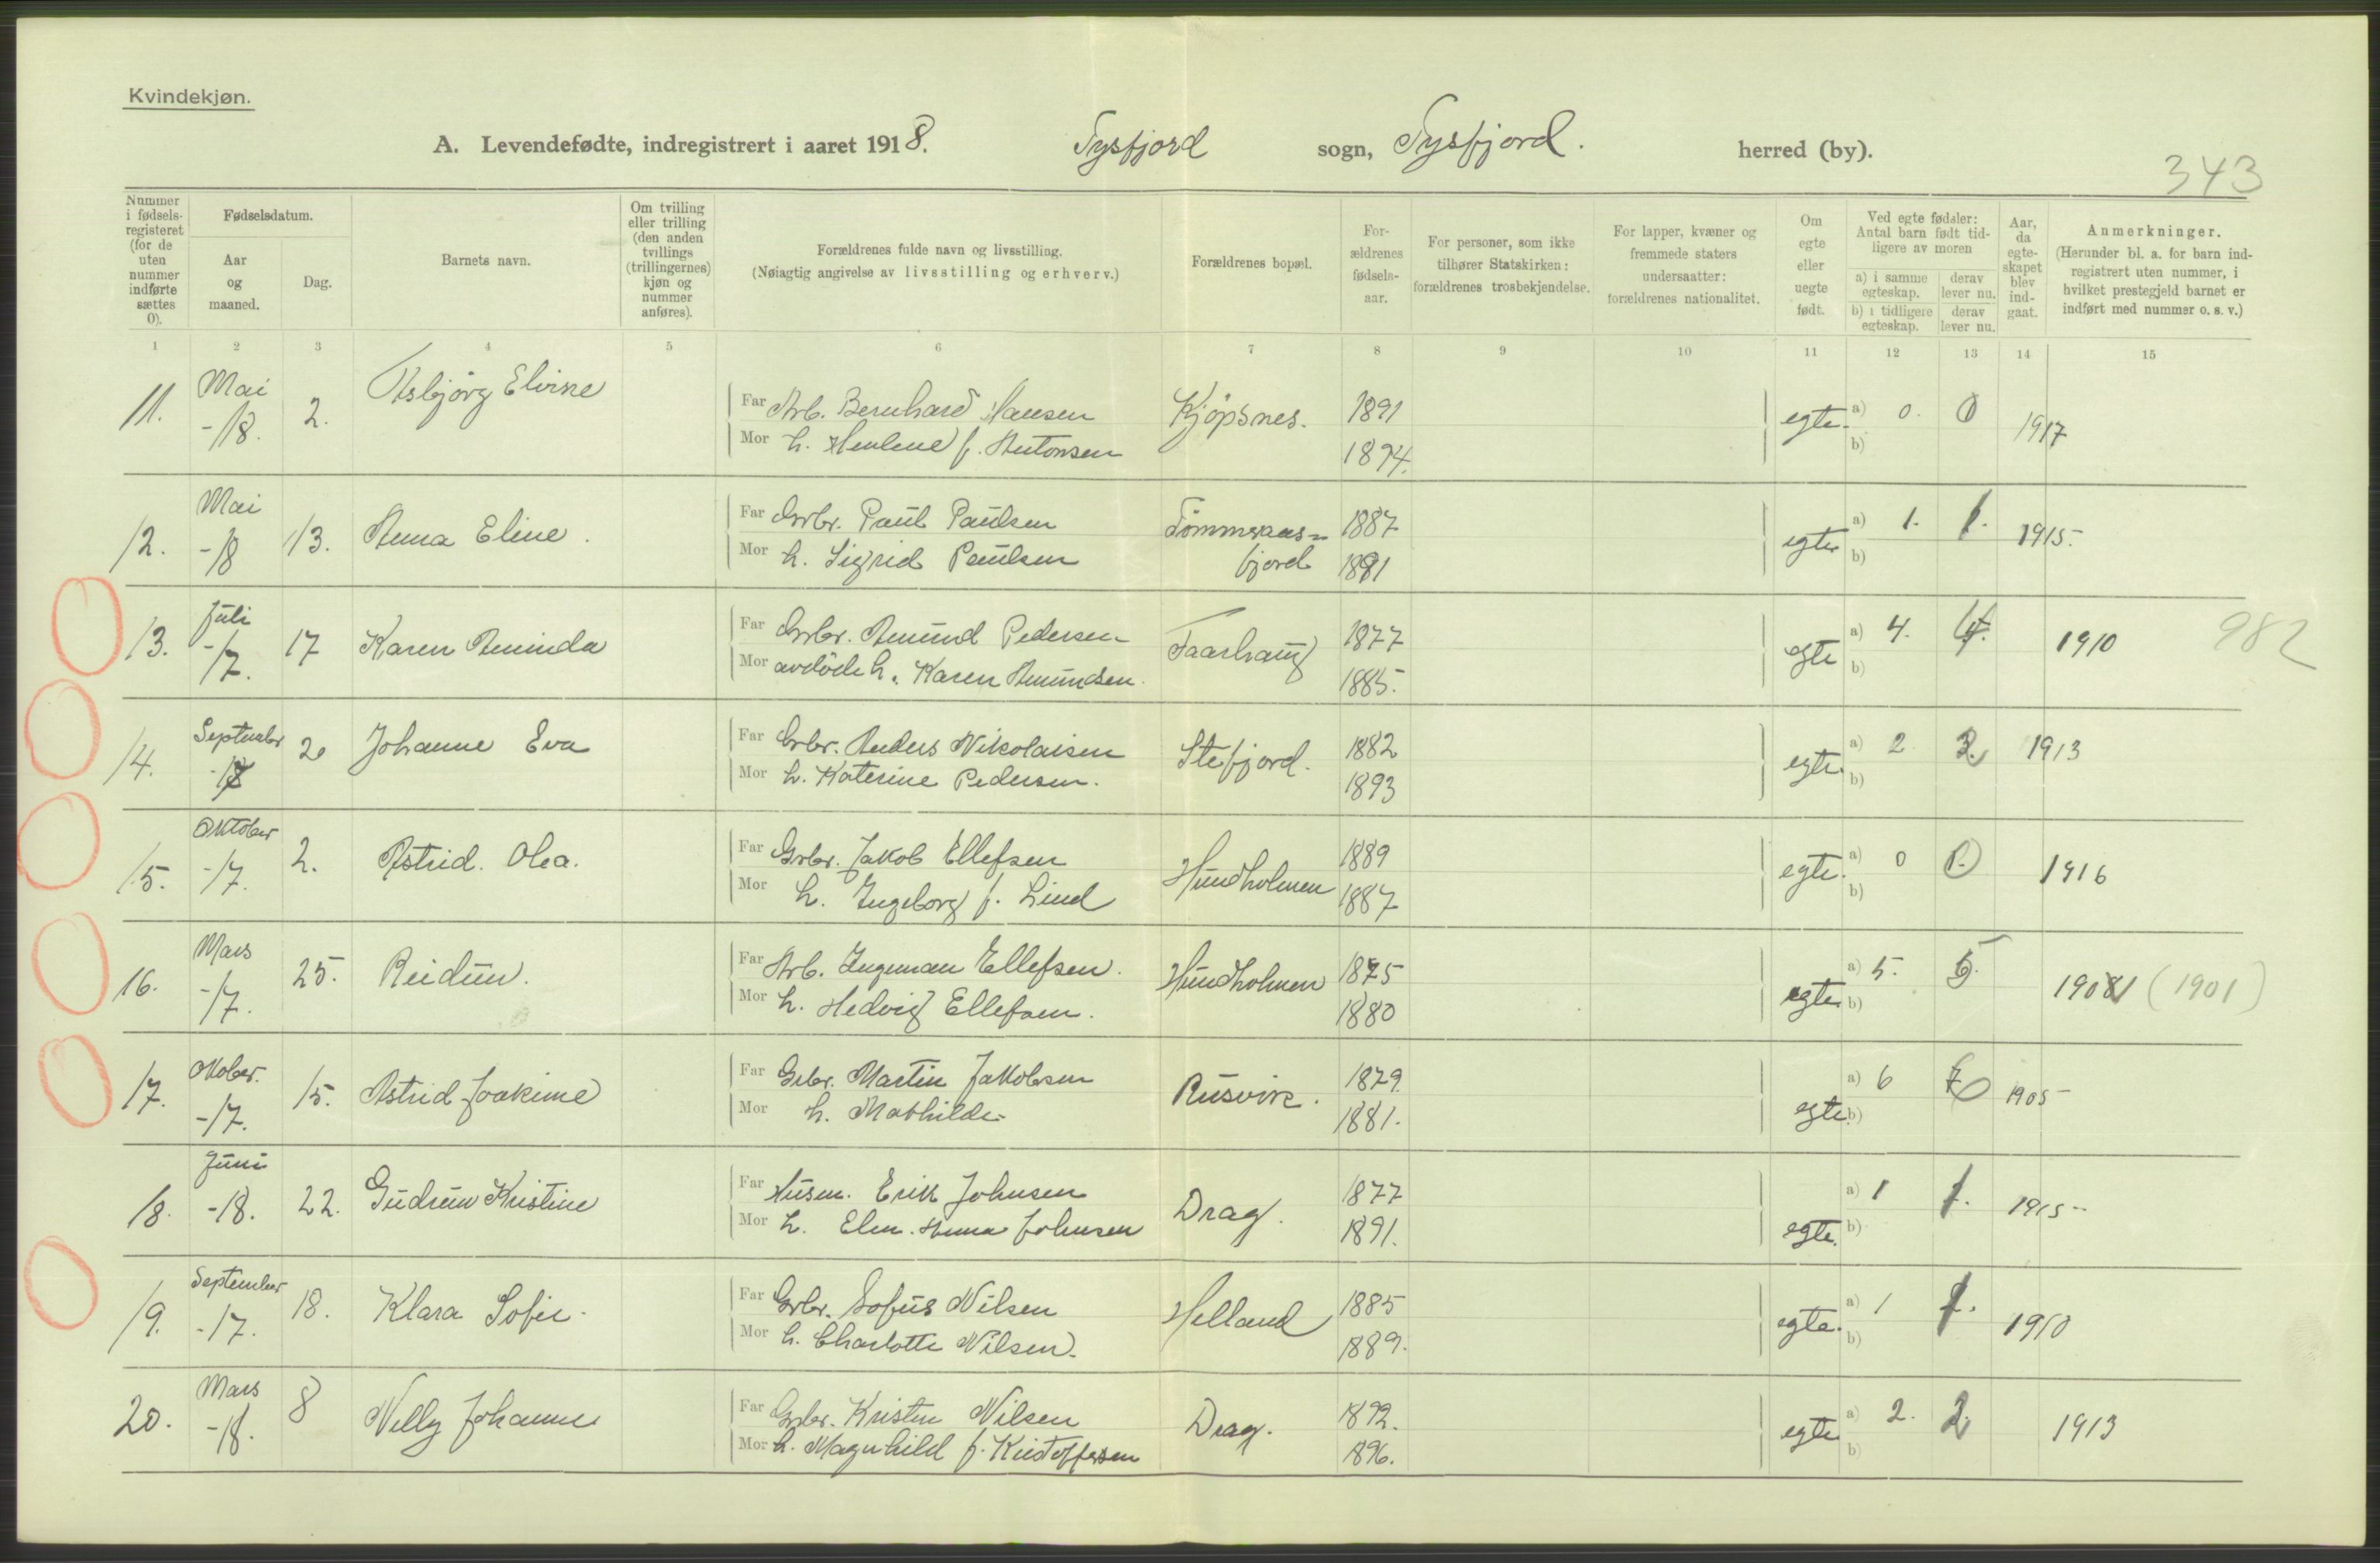 Kvindekjøn.
A. Levendefødte, indregistrert i aaret 1918. Tysfjord sogn, Tysfjord. herred (by).
343
Nummer i fødselsregisteret (for de uten nummer indførte sættes 0).
Fødselsdatum.
Aar og maaned.
Dag.
Barnets navn.
Om tvilling eller trilling (den anden tvillings (trillingernes) kjøn og nummer anføres).
Forældrenes fulde navn og livsstilling.
(Nøiagtig angivelse av livsstilling og erhverv.)
Forældrenes bopæl.
Forældrenes fødselsaar.
For personer, som ikke tilhører Statskirken: forældrenes trosbekjendelse.
For lapper, kvæner og fremmede staters undersaatter: forældrenes nationalitet.
Om egte eller uegte født.
Ved egte fødsler: Antal barn født tidligere av moren
a) i samme egteskap. derav lever nu.
b) i tidligere egteskap. derav lever nu.
Aar, da egteskapet blev indgaat.
Anmerkninger.
(Herunder bl. a. for barn indregistrert uten nummer, i hvilket prestegjeld barnet er indført med nummer o. s. v.)
1 2 3 4 5 6 7 8 9 10 11 12 13 14 15
11. Mai -18. 2. Asbjörg Elvine
Far Arb. Bernhard Hansen Kjöpsnes. 1891 egte. a) 0. 0 1917
Mor h. Henlene f. Antonsen 1894. b)
12. Mai -18 13. Anna Eline.
Far Grbr. Paul Paulsen Tömmeraas- 1887 egte a) 1. 1. 1915.
Mor h. Sigrid Paulsen fjord 1891 b)
13. Juli -17. 17 Karen Aminda
Far Grbr. Amund Pedersen Taarhaug 1877 egte a) 4. 4. 1910 982
Mor avdöde h. Karen Amundsen. 1885. b)
14. September -17 20 Johanne Eva
Far Grbr. Anders Nikolaisen Stefjord. 1882 egte. a) 2 2. 1913
Mor h. Katerine Pedersen. 1893 b)
15. Oktober -17. 2. Astrid. Olea.
Far Grbr. Jakob Ellefsen Hundholmen 1889 egte. a) 0 0 1916
Mor h. Ingeborg f. Lind 1887 b)
16. Mars -17. 25. Reidun.
Far Arb. Ingeman Ellefsen. Hundholmen 1875 egte a) 5. 5. 1901 (1901)
Mor h. Hedvig Ellefsen. 1880 b)
17. Oktober. -17. 15. Astrid Joakime
Far Grbr. Martin Jakobsen Rusvik. 1879. egte. a) 6 1905
Mor h. Mathilde 1881. b)
18. Juni -18. 22. Gudrun Kristine
Far Husm. Erik Johnsen Drag. 1877 egte. a) 1 1. 1915
Mor h. Elen. Anna Johnsen 1891. b)
19. September -17. 18. Klara Sofie.
Far Grbr. Sofus Nilsen Helland 1885 egte. a) 1 1. 1910
Mor h. Charlotte Nilsen. 1889. b)
20. Mars -18. 8 Nelly Johanne
Far Grbr. Kristen Nilsen Drag. 1892. egte a) 2. 2. 1913
Mor h. Magnhild f. Kristoffersen 1896. b)